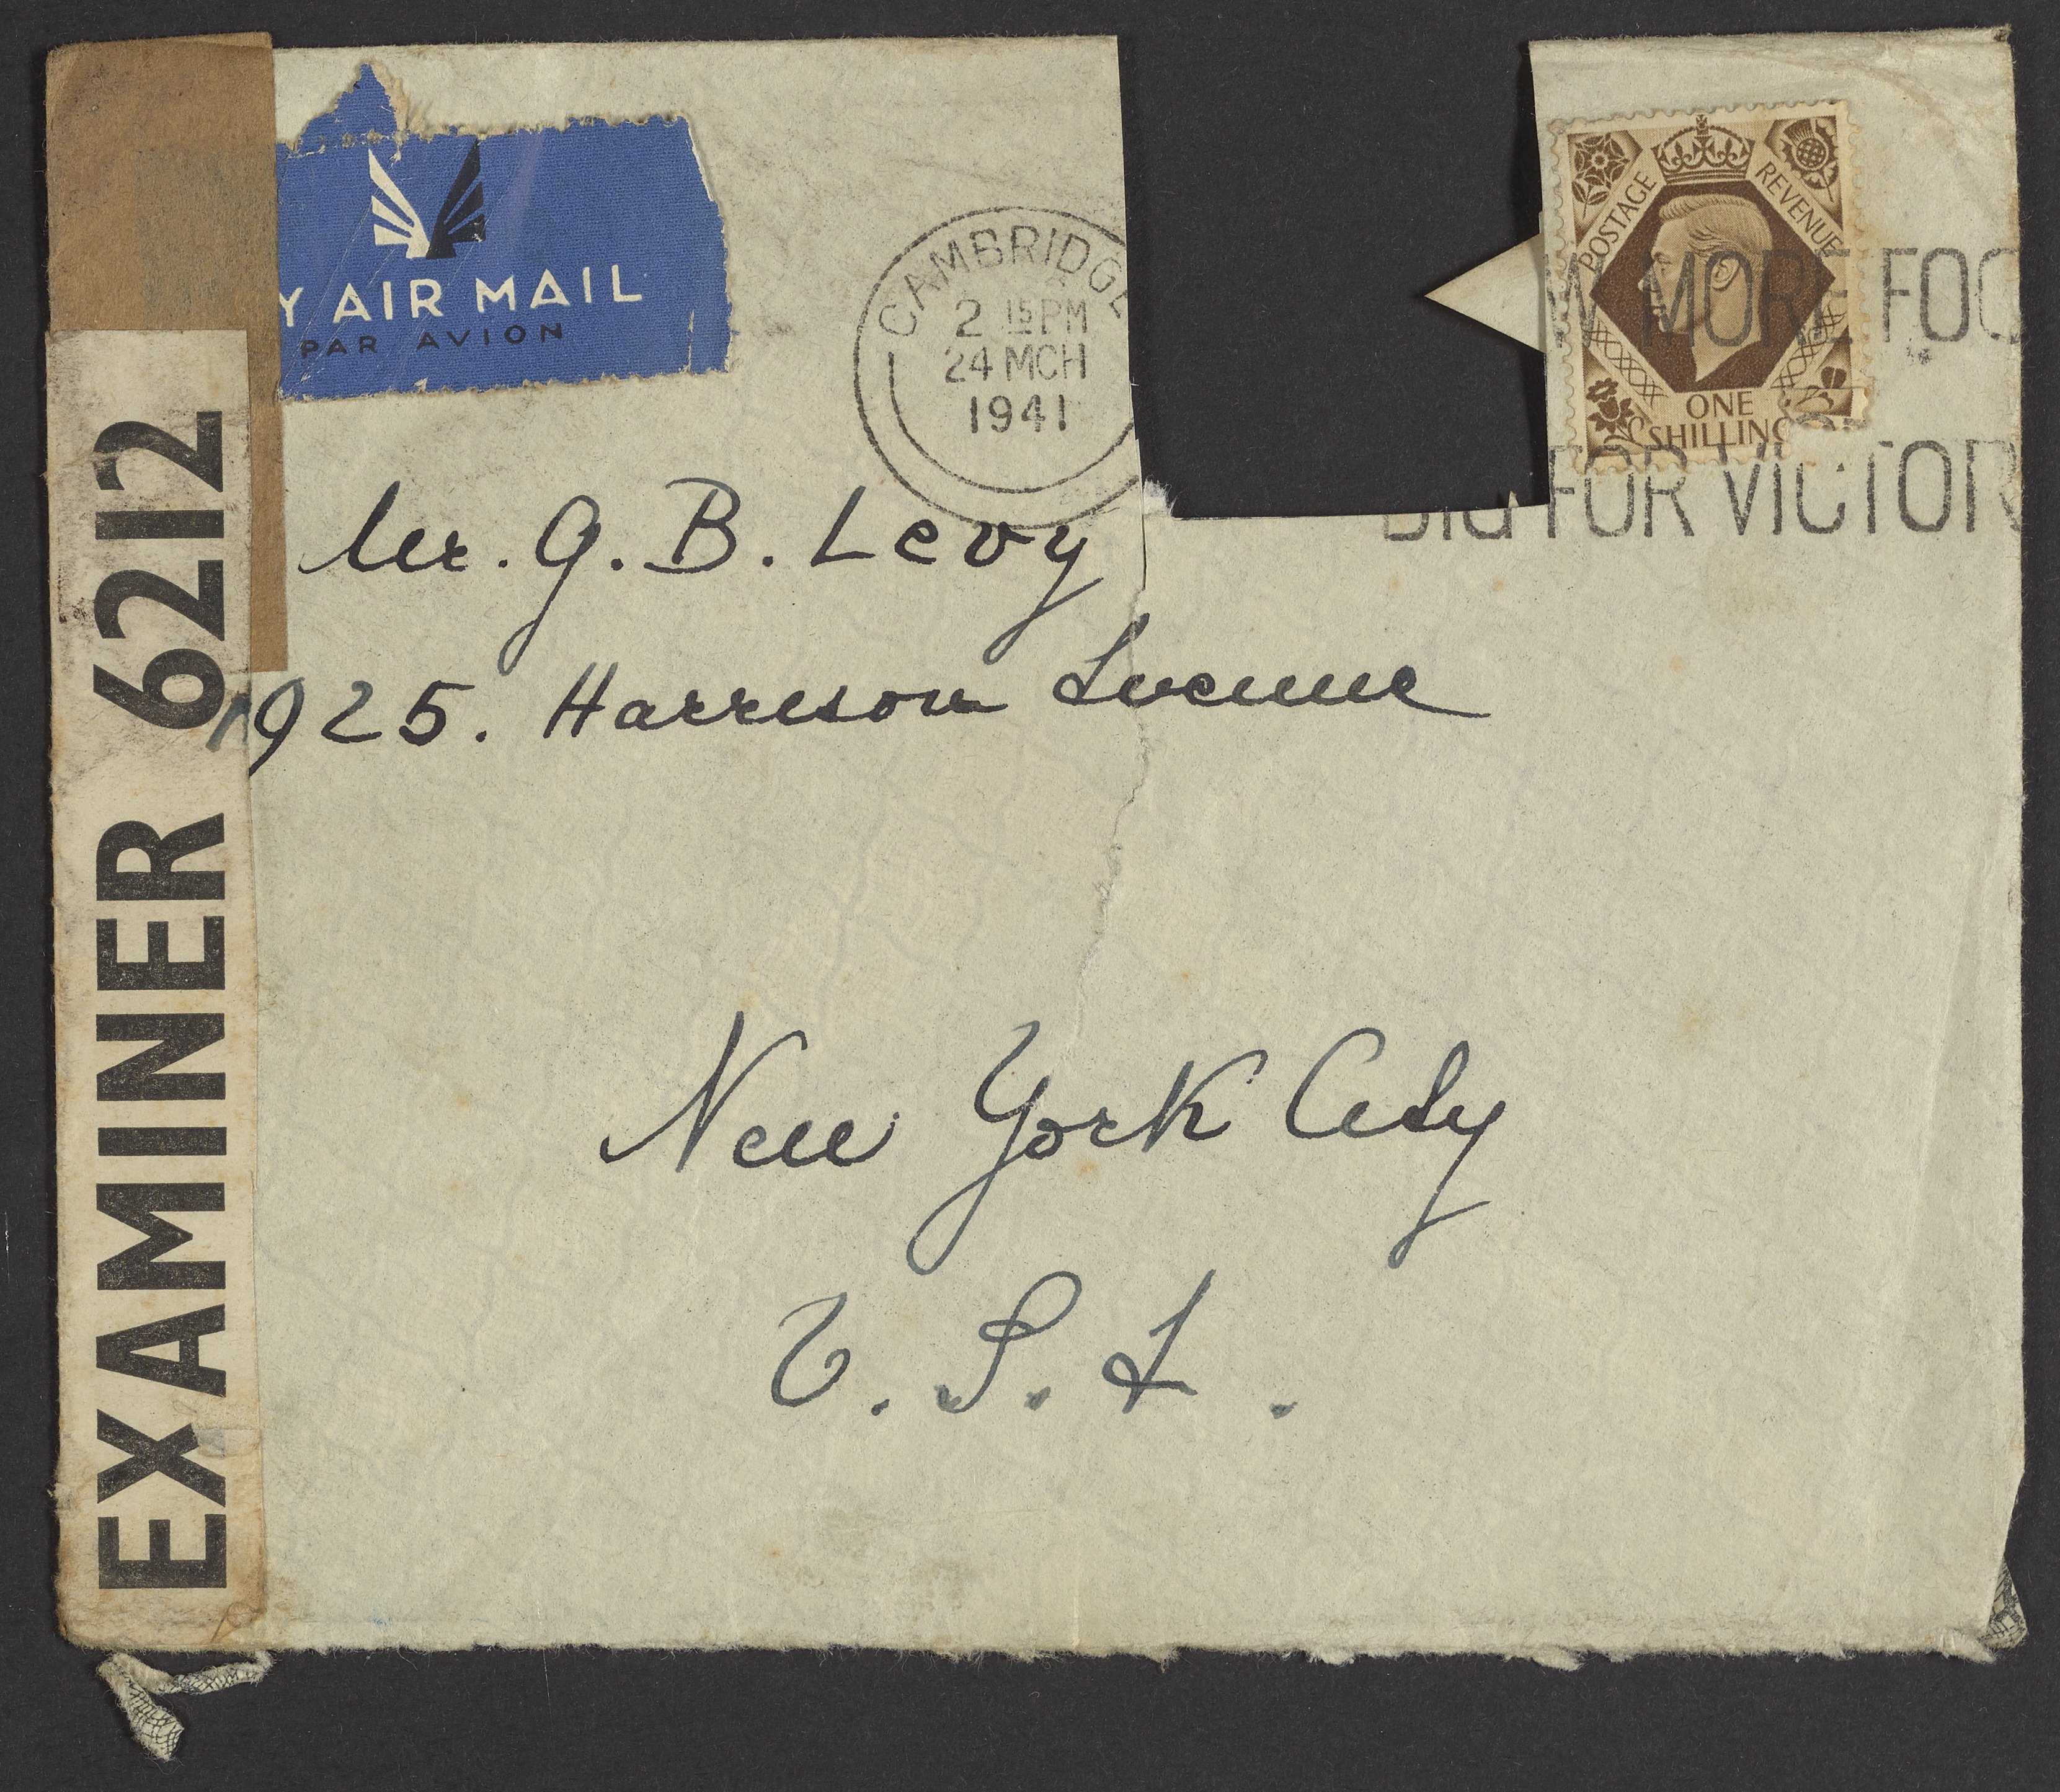 Y AIR MAIL
PAR AVION
CAMBRIDGE
2 15 PM
24 MCH
1941
POSTAGE REVENUE
ONE
SHILLING
W MORE FOO
DIG FOR VICTOR
Mr. G. B. Levy
1925. Harrison Avenue
New York City
U. S. A.
EXAMINER 6212